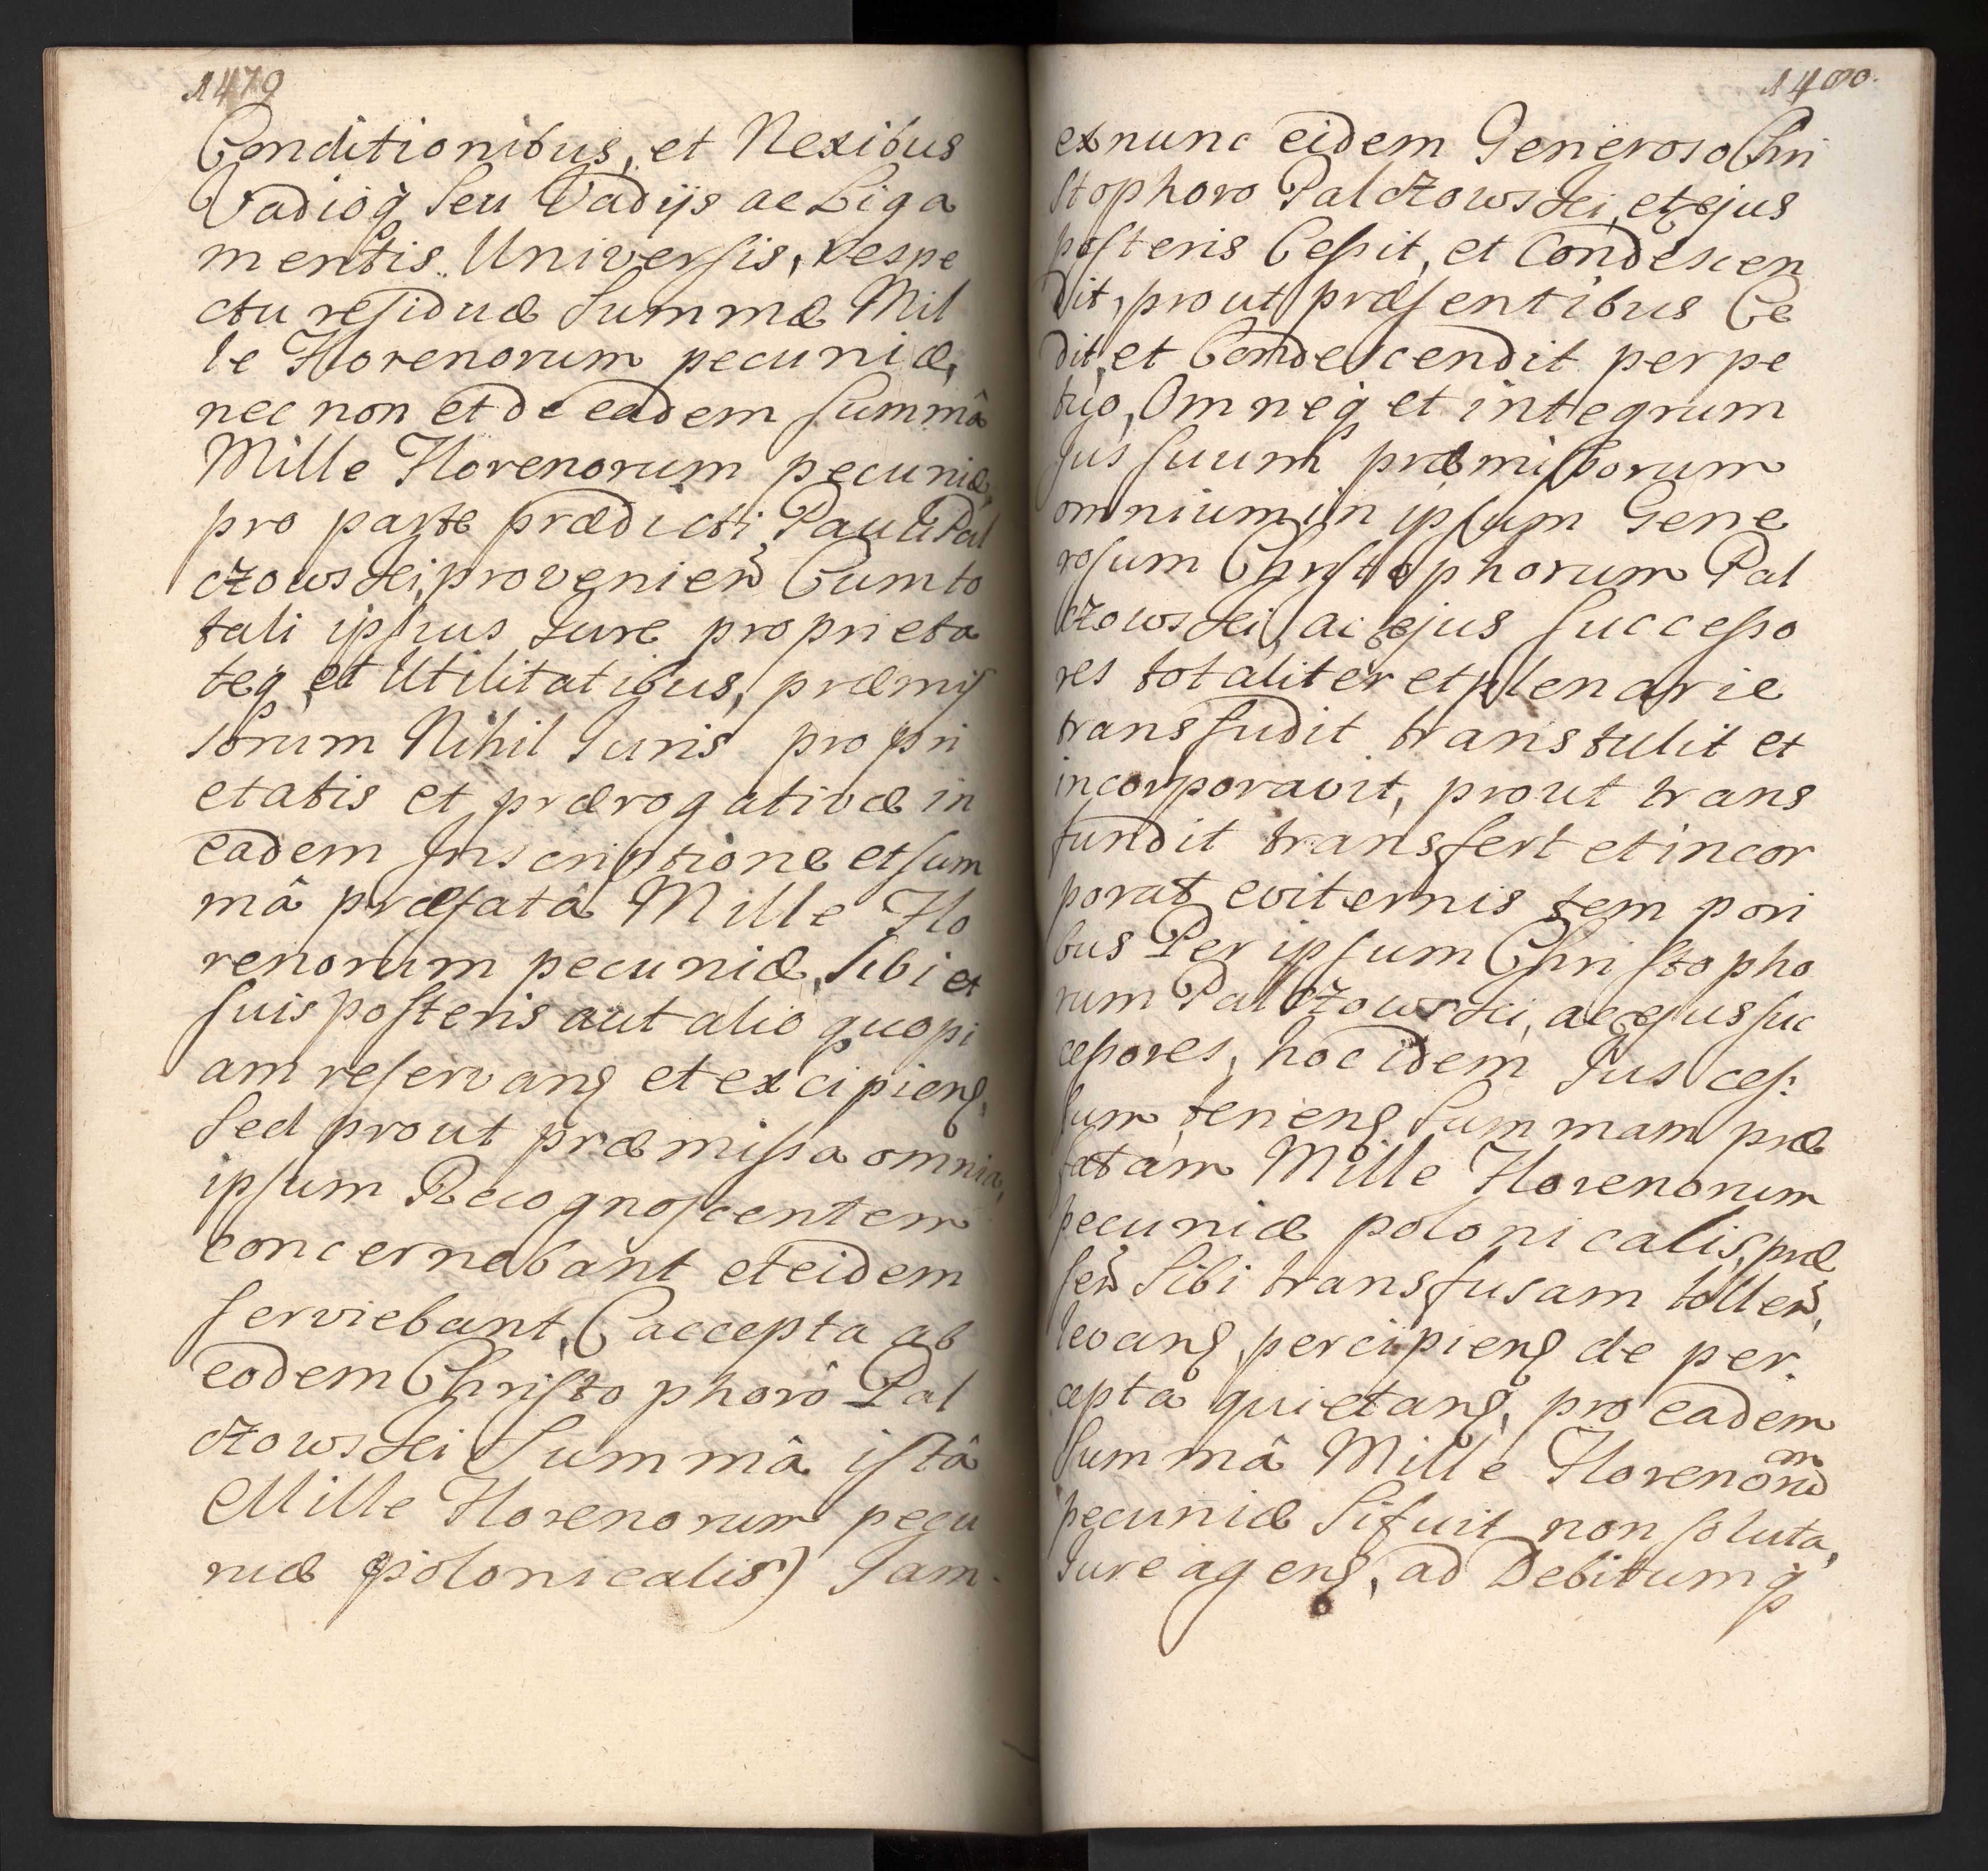 1479
Conditionibus, et Nexibus
Vadioq́ seu Vadijs ac Liga
mentis Universis, respe
ctu residuæ Summæ Mil
le Florenorum pecuniæ,
nec non et de eadem summâ
Mille Florenorum pecuniæ,
pro parte prædicti Pauli Pal
czowski, provenien̄ Cum to
tali ipsius Jure proprieta
teq́ et Utilitatibus, præmis
sorum Nihil Juris propri
etatis et prærogativæ in
eadem Inscriptione et sum
mâ præfatâ Mille Flo
renorum pecuniæ, Sibi et
suis posteris aut alio quopi
am reservans et excipiens,
Sed prout præmissa omnia,
ipsum Recognoscentem
concernebant et eidem
serviebant, (accepta ab
eodem Christophorô Pal
czowski Summâ istâ
Mille Florenorum pecu
niæ polonicalis) Jam
1480.
ex nunc eidem Generoso Chri
stophoro Palczowski, et ejus
posteris Cessit, et Condescen
dit, prout præsentibus Ce
dit, et Condescendit perpe
tuo, Omneq́ et integrum
Jus suum præmissorum
omnium in ipsum Gene
rosum Christophorum Pal
czowski, ac ejus Successo
res totaliter et plenarie
transfudit transtulit et
incorporavit, prout trans
fundit transfert et incor
porat eviternis tempori
bus Per ipsum Christopho
rum Palczowski, ac ejus suc
cessores, hoc idem Jus ces:
sum tenens Summam præ
fatam Mille Florenorum
pecuniæ polonicalis, præ
sen̄ Sibi transfusam tollen̄,
levans, percipiens de per
cepta quietans, pro eadem
Summâ Mille Florenorum
pecuniæ Si fuit non soluta,
Jure agens, ad Debitumq́